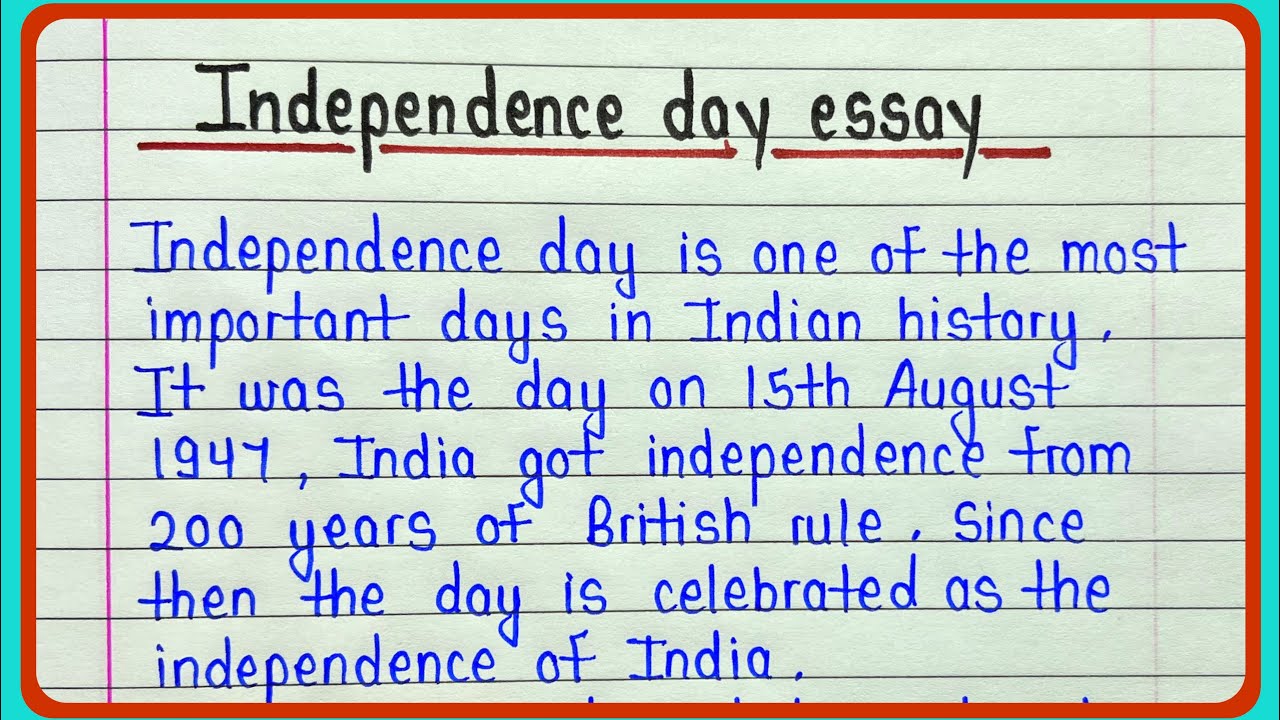 Independence day essay
Independence day is one of the most
important days in Indian history.
It was the day on 15th August
1947, India got independence from
200 years of British rule. Since
then the day is celebrated as the
independence of India.